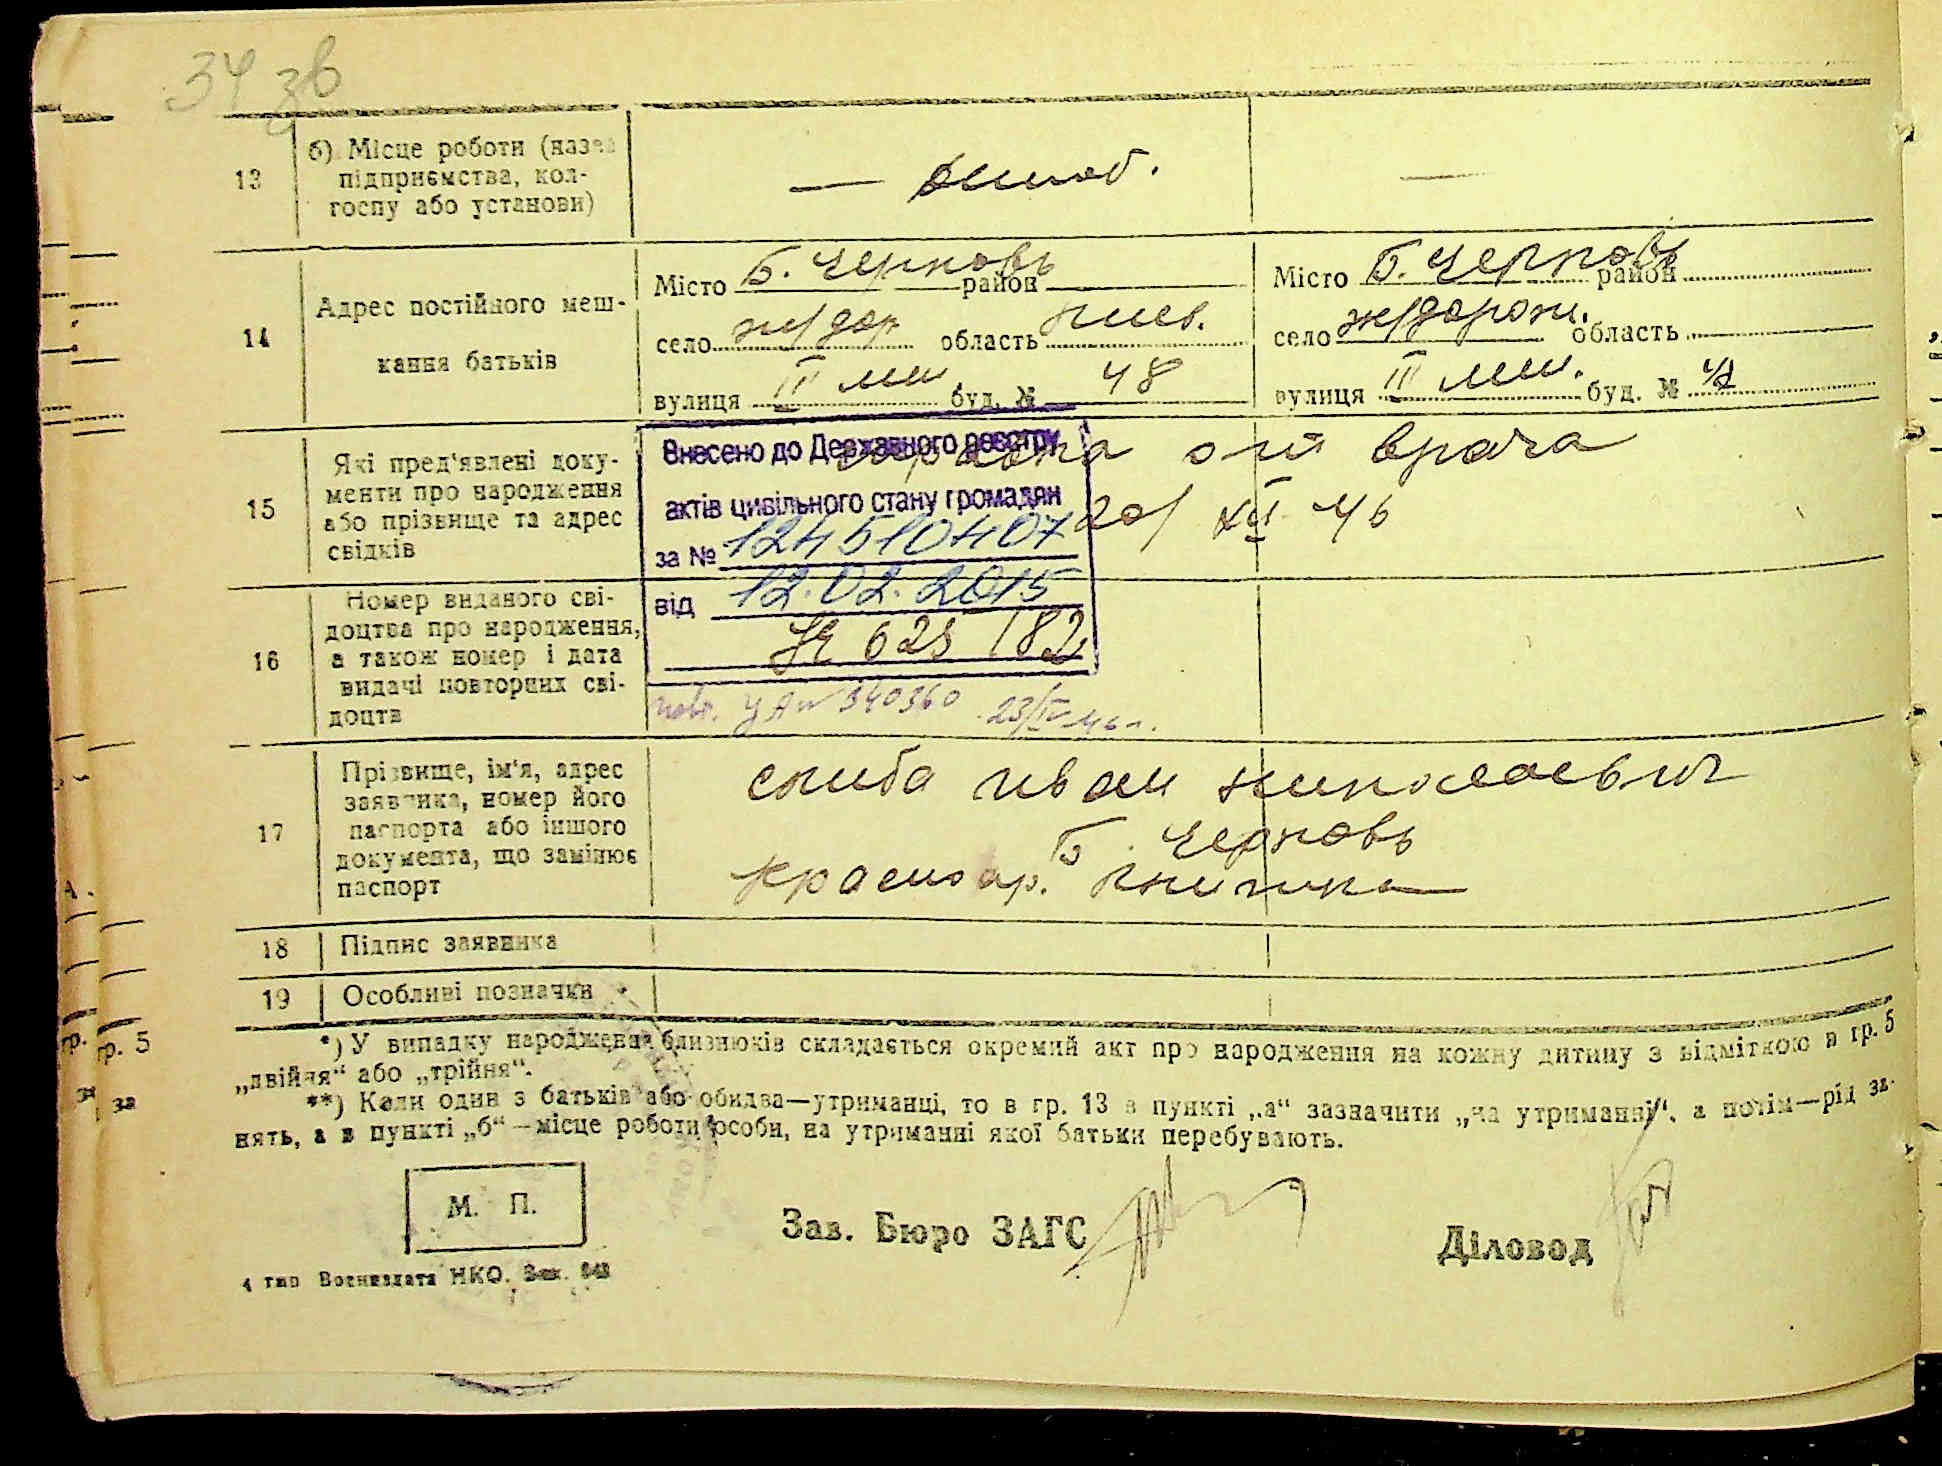 34 зв
13
б) Місце роботи (назва
підприємства, кол-
госпу або установи)
—
—
14
Адрес постійного меш-
кання батьків
Місто Б. Черновь район
село ж/дор область Киев.
вулиця III буд. № 48
Місто Б. Черновь район
село ж/дорожн. область
вулиця III буд. №
15
Які пред'явлені доку-
менти про народження
або прізвище та адрес
свідків
справка от врача
20/XII 46
Внесено до Державного реєстру
актів цивільного стану громадян
за № 124510407
від 12.02.2015
625 182
16
Номер виданого сві-
доцтва про народження,
а також номер і дата
видачі повторних сві-
доцтв
340360 23/IV
17
Прізвище, ім'я, адрес
заявника, номер його
паспорта або іншого
документа, що замінює
паспорт
Иван Николаевич
Б. Черновь
красноар. книжка
18
Підпис заявника
19
Особливі позначки
*) У випадку народження близнюків складається окремий акт про народження на кожну дитину з відміткою в гр. 5
„двійня“ або „трійня“.
**) Коли один з батьків або обидва—утриманці, то в гр. 13 в пункті „а“ зазначити „на утриманні“, а потім—рід за-
нять, а в пункті „б“—місце роботи особи, на утриманні якої батьки перебувають.
гр. 5
за
М. П.
Зав. Бюро ЗАГС
Діловод
4 тип Воениздата НКО. Зак.